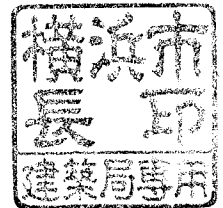 横浜市
長印
建築局専用